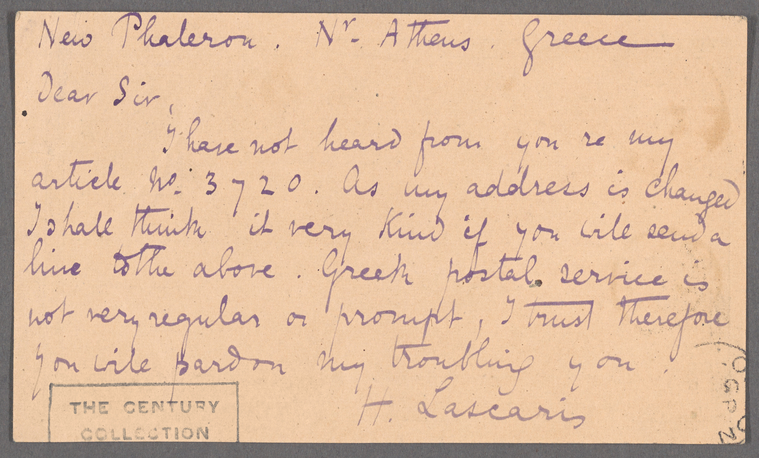 New Phaleron. Nr. Athens. Greece
Dear Sir,
I have not heard from you re my
article No. 3720. As my address is changed
I shall think it very kind if you will send a
line to the above. Greek postal service is
not very regular or prompt, I trust therefore
you will pardon my troubling you.
H. Lascaris
THE CENTURY
COLLECTION